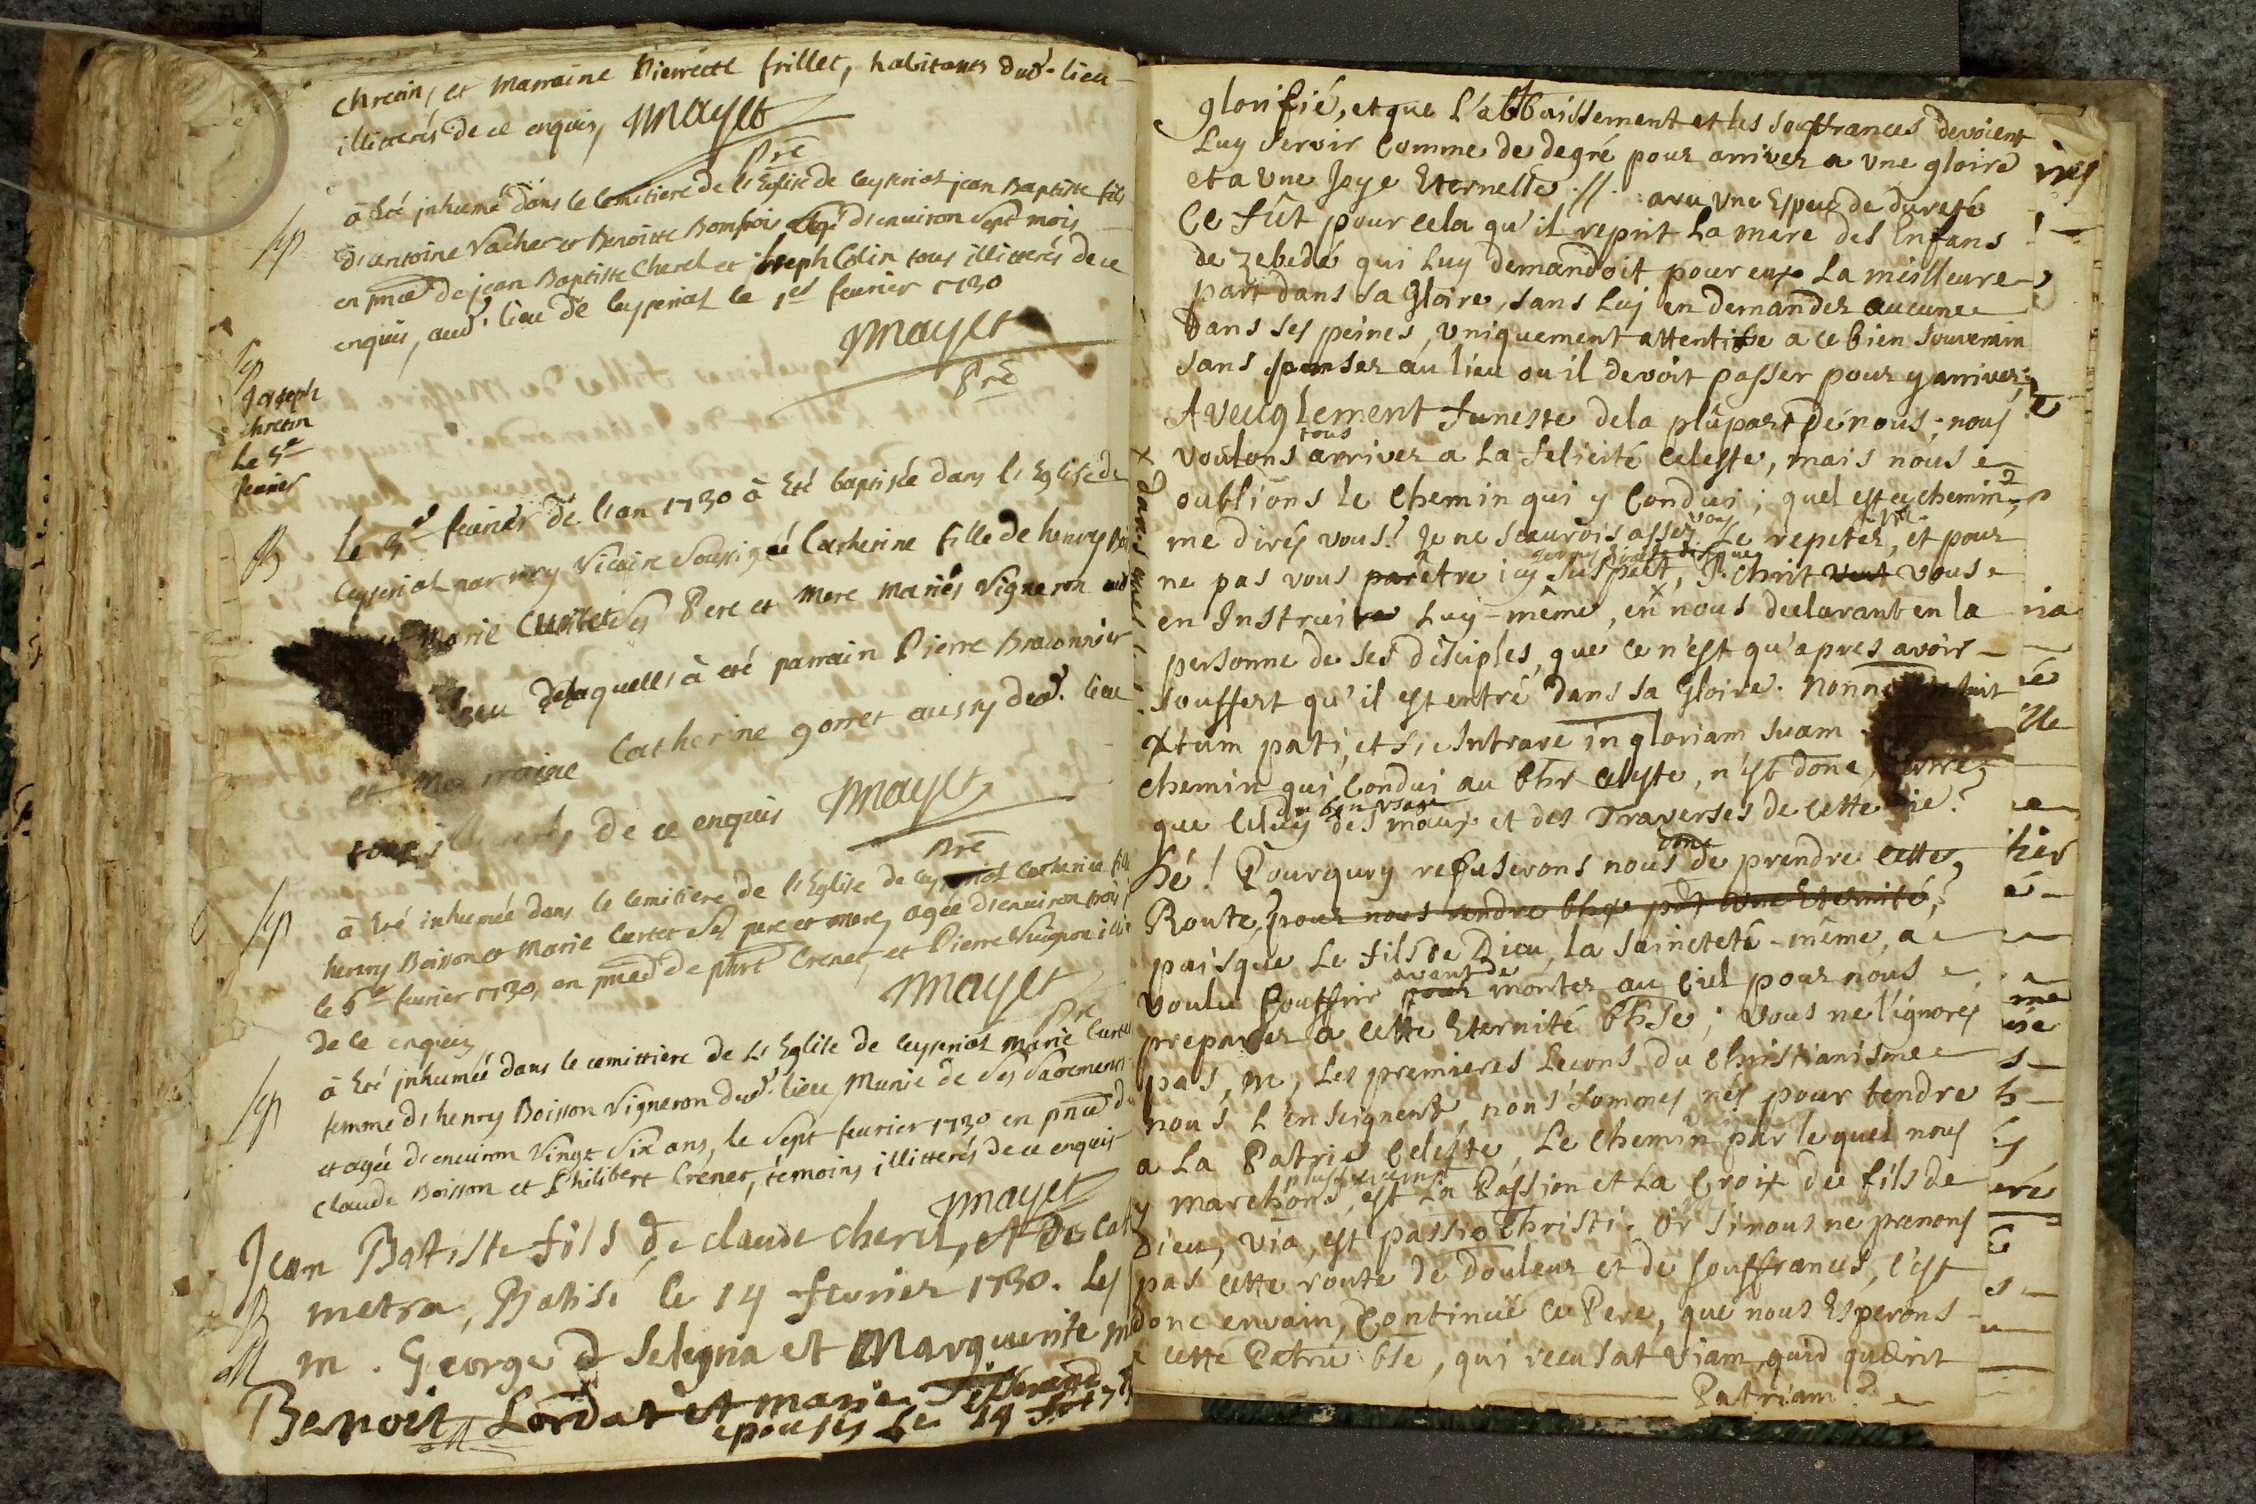 chretin, et Marraine Pierrette frillet, habitants dud. lieu
illitterés de ce enquis, Mayet
Pre
Sep
à Eté jnhumé dans le Cemitiere de l'Eglise de Ceyseriat jean Baptiste fils
d'antoine Vacher et Benoitte Agé d'environ Sept mois
en pnce de jean Baptiste Cherel et Joseph Colin tous illitterés de ce
enquis, aud. lieu de Ceyseriat le 1er feurier 1730
Mayet
Pre
Sep
Joseph
chretin
Le 5e
feurier
B
Le 3e feurier de l'an 1730 à Eté baptisée dans l'Eglise de
Ceyseriat par moy Vicaire Soussigné Catherine fille de henry
Marie Curtet Ses Pere et Mere Mariés Vigneron
lieu de laquelle à eté parrain Pierre Braconnier
et Marraine Catherine gorret aussy dud. lieu
tous de ce enquis Mayet
Pre
Sep
à Eté inhumée dans le Cemitiere de l'Eglise de Ceyseriat Catherine fille
henry Boisson et Marie Curtet Ses pere et mere, agée d'environ trois
le 5e feurier 1730, en pnce de Crenet, et Pierre
de ce enquis Mayet
Pre
Sep
à Eté jnhumée dans le cemittiere de L'Eglise de Ceyseriat Marie Curtet
femme d'henry Boisson Vigneron dud. lieu Munie de Ses Sacrements
et agée d'environ Vingt Six ans, le Sept feurier 1730 en pnce d
Claude Boisson et Philibert Crenet, témoins illitterés de ce enquis
Mayet
Jean Batiste fils de claude cherel, et De Cat
B metra, Batisé le 14 fevrier 1730. Les
M m. George d Selegna et Marguerite m
Benoit Lordat et marie
epousés Le 14
glorifié, et que L'abbaissement et les souffrances devoient
Luy servir Comme de degré pour arriver a une gloire
et a une Joye Eternelle .//. : avu une Espece de dureté
Ce fût pour cela qu'il reprit La mere des Enfans
de zebedé qui Luy demandoit pour eux La meilleure
part dans sa Gloire, sans Luj en demander aucune
dans ses peines, uniquement attentive a ce bien souverain
sans panser au lieu ou il devoit passer pour y arriver;
Aveuglement funeste de la plûpart de nous; nous
tous
voulons arriver a La felicité Celeste, mais nous
oublions le Chemin qui y Condui; quel est ce chemin?
me dirés vous? Je ne sçaurois assez vous Le repeter, et pour
ne pas vous parêtre icy suspect, J. Chrit vous
en Instruire Luy-même, en nous declarant en la
x dans
personne de ses disciples, que ce n'est qu'apres avoir
souffert qu'il est entré dans sa Gloire. Nonne
xtum pati, et sic Intrare in gloriam suam
chemin qui Condui au bhr Celeste, n'est donc
du bon usage
que Celuy des maux et des Traverses de cette vie?
donc
hé! Pourquoy refuserons nous de prendre cette
Route, pour nous rendre bhx pdt une Eternité,?
puisque Le fils de Dieu, la sainteté-même, a
avant de
voulu souffrir pour monter au Ciel pour nous
preparer a cette Eternité bhse; vous ne l'ignorés
pas, M, Les premieres Leçons du Christianisme
nous L'enseignent, nous sommes nés pour tendre
a La Patrie Celeste, Le Chemin par lequel nous
y marchons, est La Passion et La Croix du fils de
Dieu, via, est passio Christi. Or si nous ne prenons
pas cette route de Douleur et de souffrances, c'est
donc envain, Continuë Ce Pere, que nous Esperons
cette Patrie bse, qui recusat viam quid quærit
Patriam?